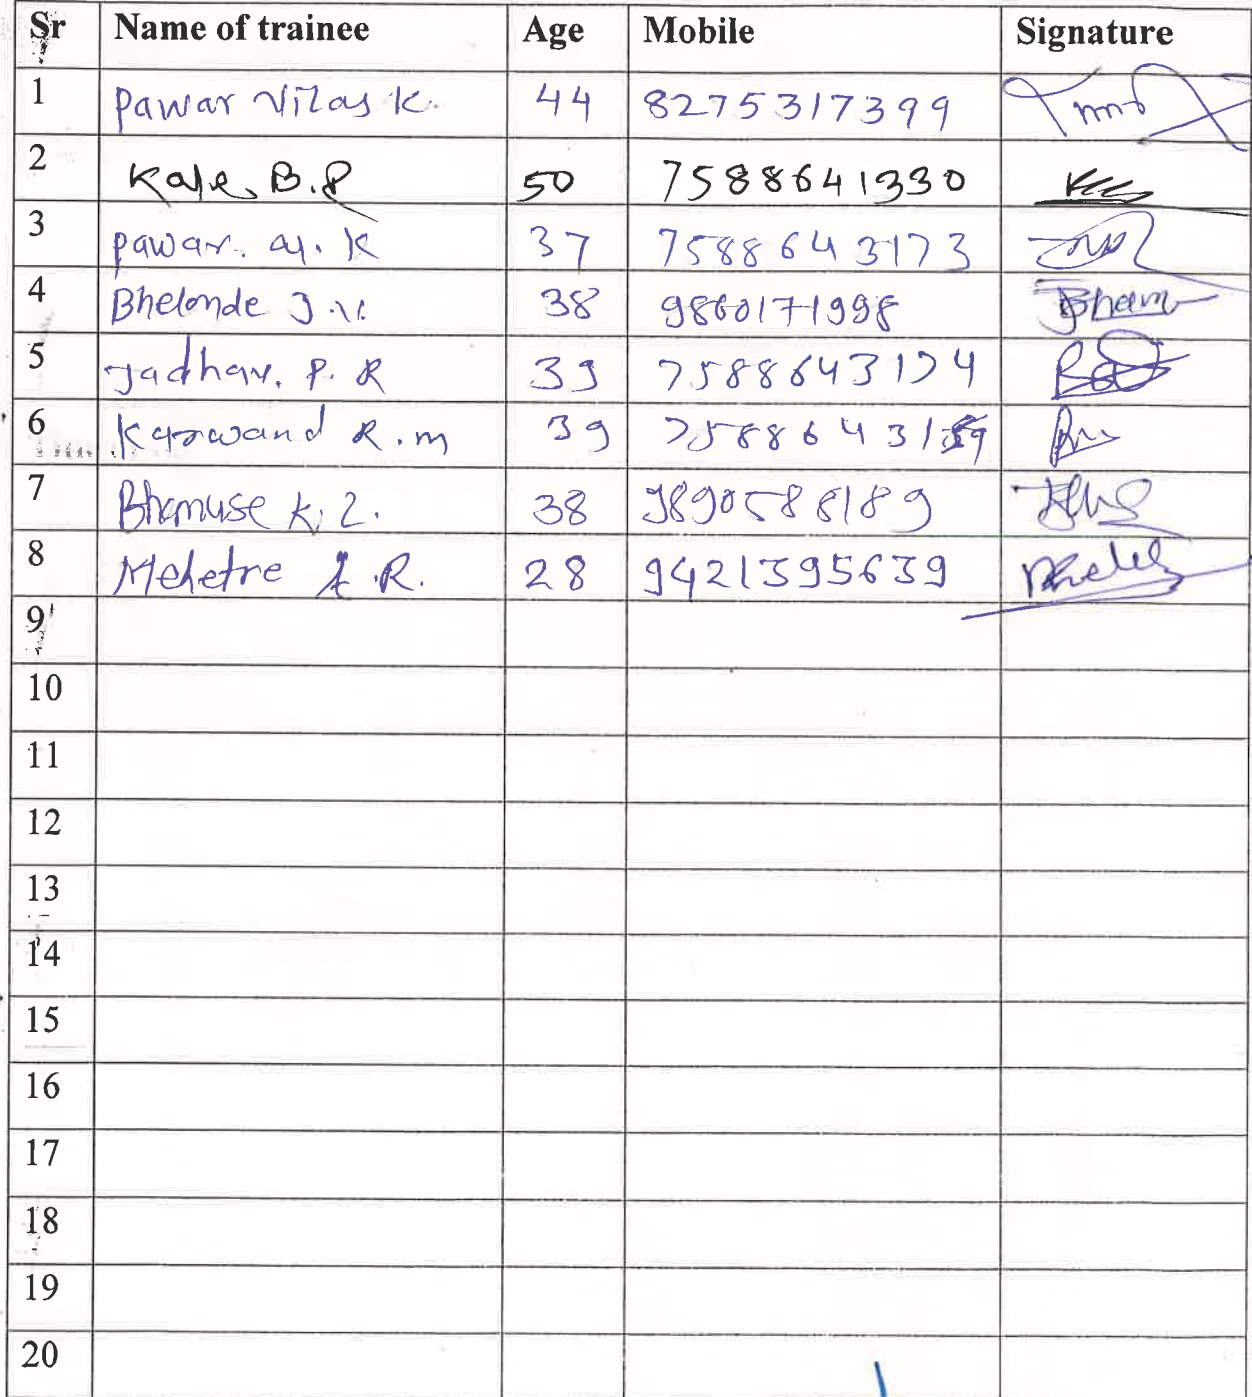 Sr Name of trainee Age Mobile Signature
1 Pawar Vilas K. 44 8275317399
2 Kale. B.P 50 7588641330
3 pawar. K 37 7588643173
4 Bhelonde J.V. 38 9860171998
5 Jadhav. P. R 39 7588643174
6 Karwand R.m 39 75886431
7 Bhamuse K. 2. 38 9890588189
8 Mehetre A.R. 28 9421395639
9
10
11
12
13
14
15
16
17
18
19
20